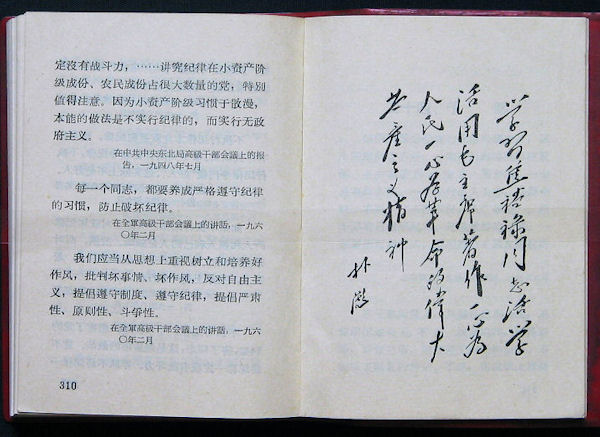 定沒有战斗力，……讲究纪律在小资产阶
级成份、农民成份占很大数量的党，特别
值得注意。因为小资产阶级习惯于散漫，
本能的做法是不实行纪律的，而实行无政
府主义。
在中共中央东北局高级干部会议上的报
告，一九四八年七月
每一个同志，都要养成严格遵守纪律
的习惯，防止破坏纪律。
在全軍高级干部会议上的讲话，一九六
〇年二月
我们应当从思想上重视树立和培养好
作风，批判坏事情、坏作风，反对自由主
义，提倡遵守制度、遵守纪律，提倡严肃
性、原则性、斗爭性。
在全軍高级干部会议上的讲话，一九六
〇年二月
310
学習焦裕禄同志活学
活用毛主席著作一心为
人民一心为革命的偉大
共産主义精神
林彪